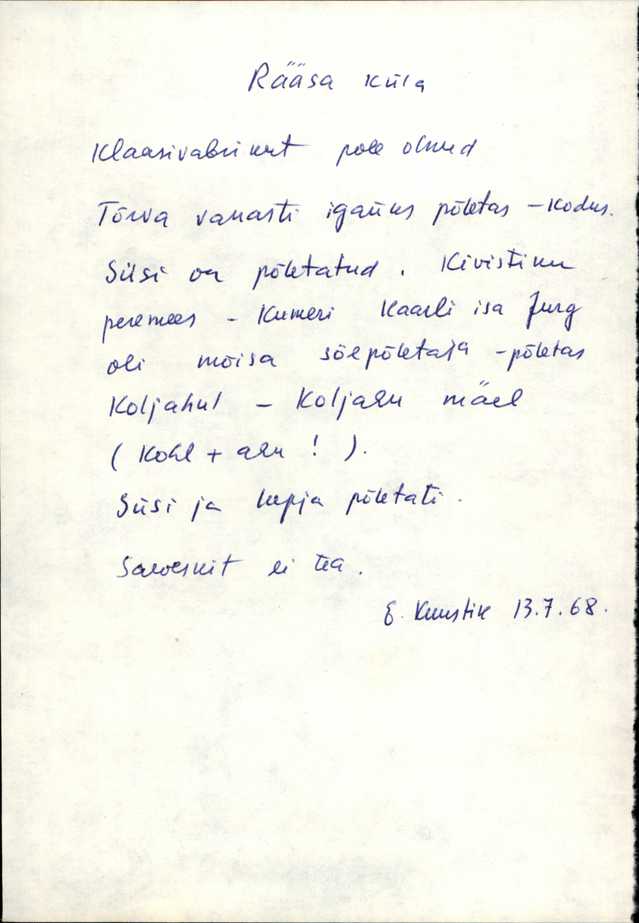 Rääsa küla
Klaasivabrikut pole olnud
Tõrva vanasti igaüks põletas – kodus.
Süsi on põletatud. Kivistiku
peremees – Kumeri Kaarli isa Jurg
oli mõisa söepõletaja – põletas
Koljahul – Koljaku mäel
(Kohl + aku!).
Süsi ja lupja põletati.
ei tea.
E. 13.7.68.